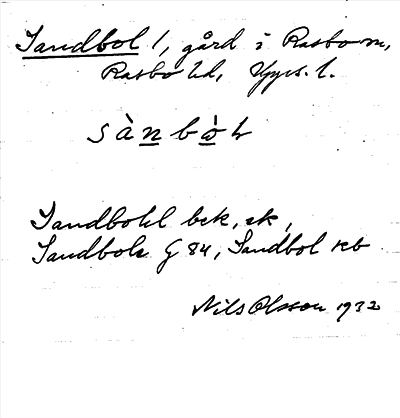 Sandbol 1, gård i Rasbo sn,
Rasbo hd, Upps. l.
sànbòł
Sandbohl bek, ek,
Sandbole G 84, Sandbol rkb
Nils Olsson 1932